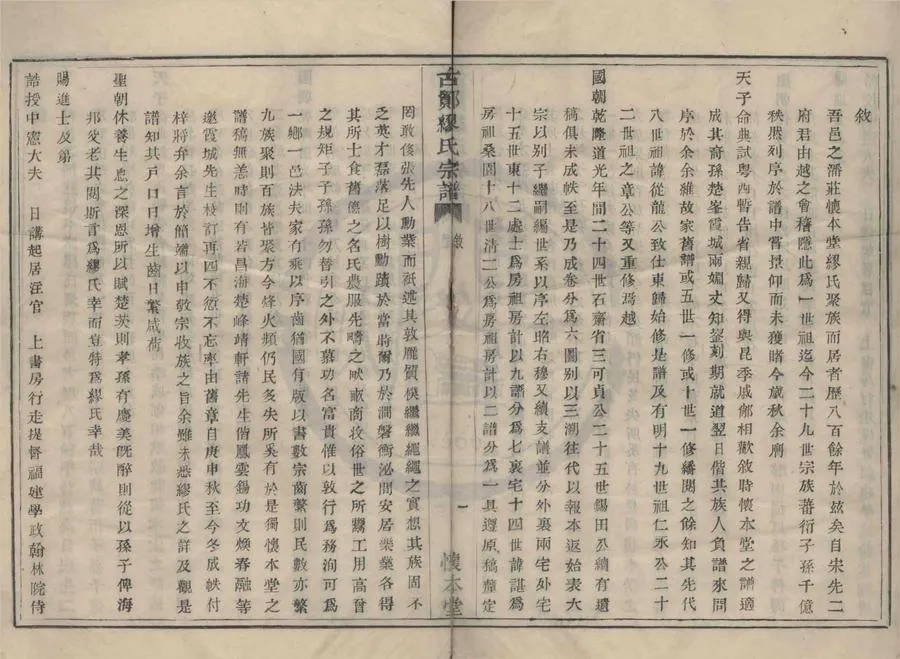 敘
吾邑之潘莊懷本堂繆氏聚族而居者歷八百餘年於茲矣自宋先二
府君由越之會稽隱此為一世祖迄今二十九世宗族蕃衍子孫千億
秩然列序於譜中嘗景仰而未獲睹今歲秋余膺
天子命典試粵西暫告省親歸又得與昆季戚鄰相歡敘時懷本堂之譜適
成其裔孫楚峯霞城兩媚丈知蓥刻期就道翌日偕其族人負譜來問
序於余余維故家舊譜或五世一修或十世一修繙閱之餘知其先代
八世祖諱從龍公致仕東歸始修是譜及有明十九世祖仁汞公二十
二世祖之章公等又重修焉越
國朝乾隆道光年間二十四世石齋省三可貞公二十五世錫田公續有遺
稿俱未成帙至是乃成卷分為六圖別以三溯往代以報本返始表大
宗以別子繼嗣編世系以序左昭右穆又續支譜並分外裏兩宅外宅
十五世東十二處士為房祖房計以九譜分為七裏宅十四世諱諶為
房祖桑園十八世清二公為房祖房計以二譜分為一具遵原稿釐定
古鄮繆氏宗譜
敘
一
懷本堂
罔敢侈張先人勳業而祇述其敦龐質樸繼繼繩繩之實想其族固不
乏英才磊落足以樹勳蹟於當時爾乃於澗磐衡泌間安居樂業各得
其所士食舊德之名氏農服先疇之畎畝商投俗世之所鬻工用高曾
之規矩子子孫孫勿替引之外不慕功名富貴惟以敦行為務洵可為
一鄉一邑法夫家有乘以序齒猶國有版以書數宗齒繁則民數亦繁
九族聚則百族皆聚方今烽火頻仍民多失所奚有於是獨懷本堂之
譜稿無恙時則有若昌海楚峰靖軒諸先生偕鳳雲錫功文煥春融等
邀霞城先生校訂再四不愆不忘率由舊章自庚申秋至今冬成帙付
梓將弁余言於簡端以申敬宗收族之旨余雖未悉繆氏之詳及觀是
譜知其戶口日增生齒日繁咸荷
聖朝休養生息之深恩所以賦楚茨則孝孫有慶美既醉則從以孫子俾海
邦叟老其閱斯言為繆氏幸而豈特為繆氏幸哉
賜進士及第
誥授中憲大夫 日講起居注官 上書房行走提督福建學政翰林院侍